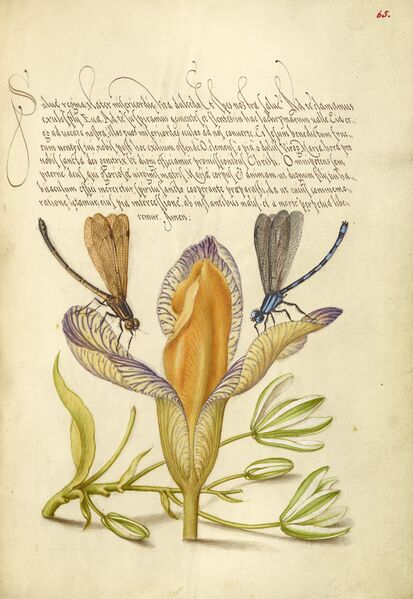 65.
Salue regina Mater misericordiæ, Vita dulcedo, Et spes nostra salue. Ad te clamamus
exules filij Euæ. Ad te suspiramus gementes et flentes in hac lachrymarum ualle. Eia er-
go aduocata nostra, illos tuos misericordes oculos ad nos conuerte. Et Iesum benedictum fruc-
tum uentris tui nobis post hoc exilium ostende. O clemens o pia o dulcis Maria. Ora pro
nobis sancta dei genetrix ut digni efficiamur promissionibus Christi. Omnipotens sem-
piterne Deus qui gloriosæ uirginis matris Mariæ corpus et animam ut dignum filij tui ha-
bitaculum effici mereretur spiritu sancto cooperante præparasti, da ut cuius commemo-
ratione lætamur, eius pia intercessione ab instantibus malis et a morte perpetua libe-
remur. Amen.